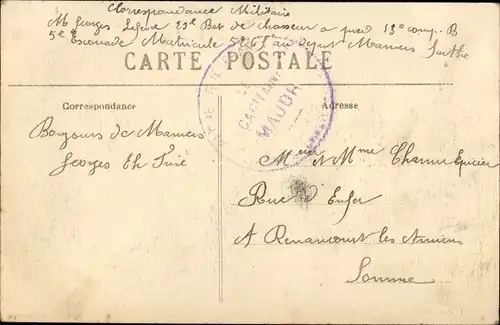 Correspondance Militaire
M Georges 29e Bat de chasseur a pied 13e comp. B
5e Escouade Matricule au depot Mamers Sarthe
CARTE POSTALE
LE
CAPITAINE
MAJOR
Correspondance
Adresse
Bonjours de Mamers
Georges
Mcier et Mme Epicier
Rue d'Enfer
A Renancourt les Amiens
Somme